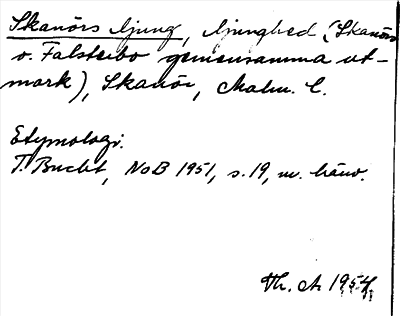 Skanörs ljung, ljunghed (Skanörs
o. Falsterbo gemensamma ut-
mark), Skanör, Malm. l.
Etymologi.
T. Bucht, NoB 1951, s. 19, m. hänv.
Th. A. 1954